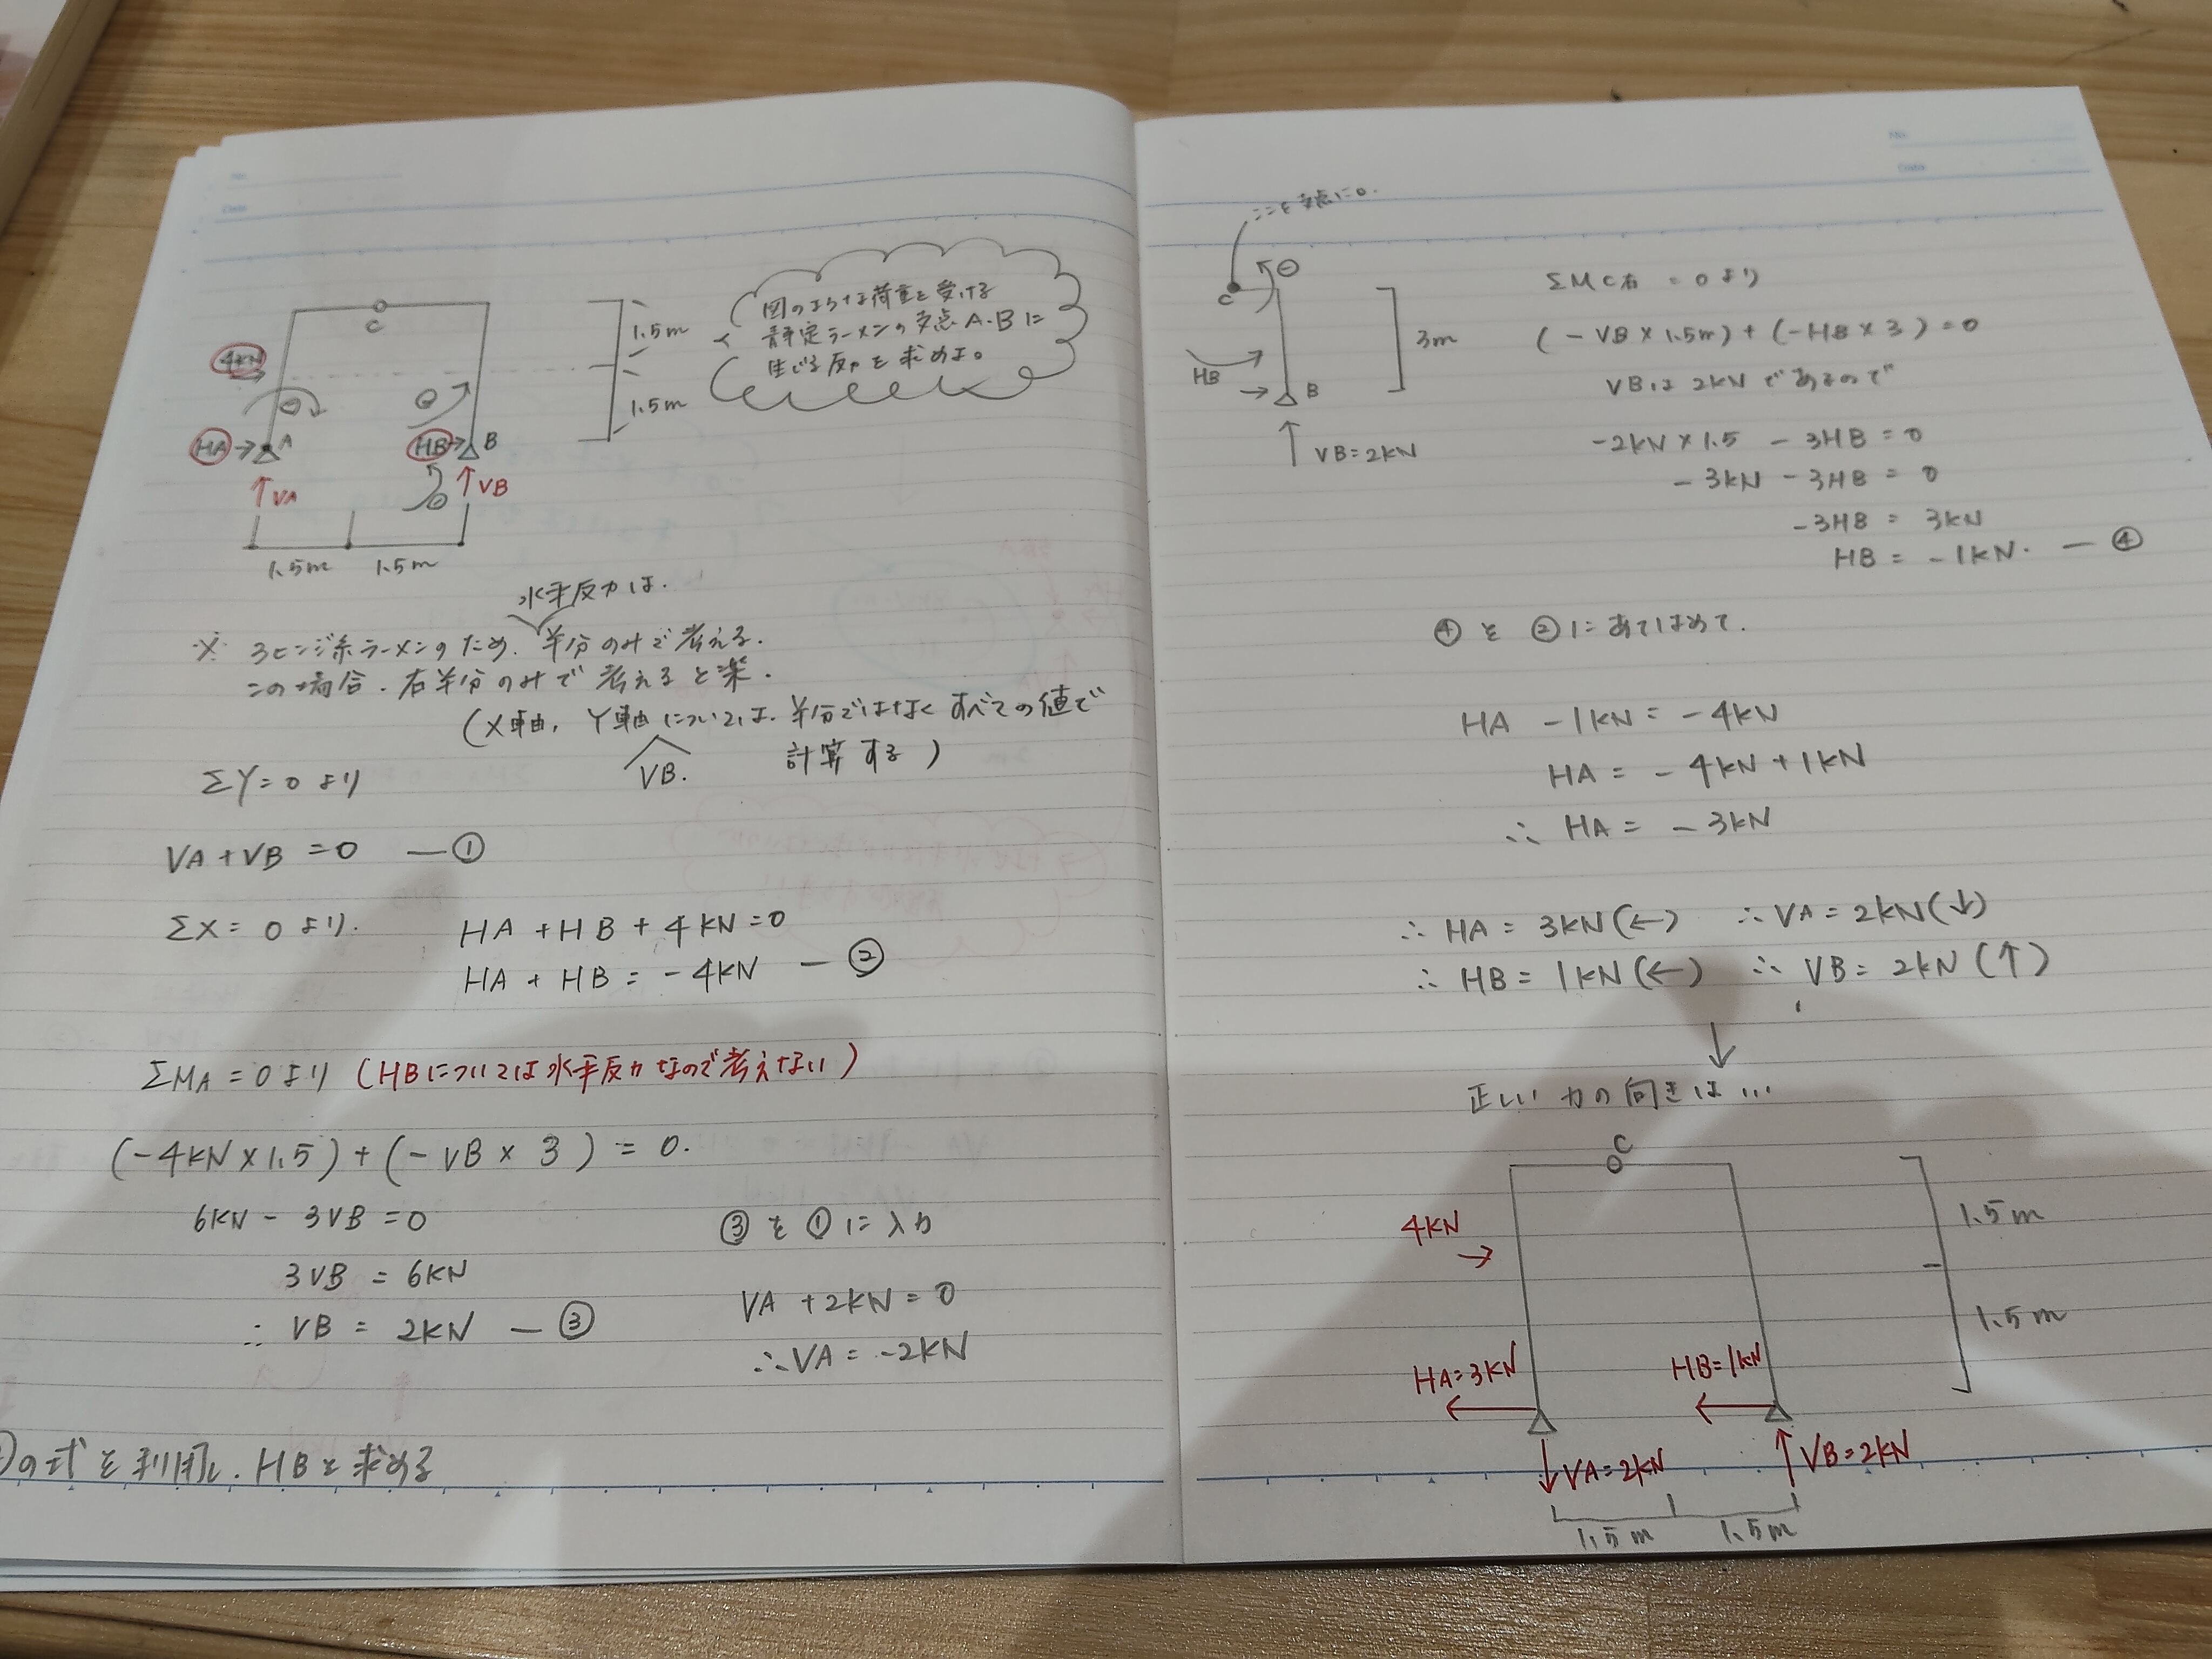 C
1.5m
4kN
1.5m
HA→ A
HB→ B
↑VA
↑VB
1.5m 1.5m
図のような荷重を受ける
静定ラーメンの支点A・Bに
生じる反力を求めよ。
水平反力は.
※ 3ヒンジ系ラーメンのため、半分のみで考える.
この場合. 右半分のみで考えると楽.
(X軸, Y軸については. 半分ではなく すべての値で
VB. 計算する)
ΣY=0より
VA+VB=0 —①
ΣX=0より. HA+HB+4KN=0
HA+HB=-4KN —②
ΣMA=0より (HBについては水平反力なので考えない)
(-4KN×1.5)+(-VB×3)=0.
6KN-3VB=0
3VB=6KN
∴ VB=2KN —③
③を①に入力
VA+2KN=0
∴VA=-2KN
の式を利用し. HBを求める
ここを支点に。
C ⊖
3m
HB
→ B
↑ VB=2KN
ΣMC右=0より
(-VB×1.5m)+(-HB×3)=0
VBは2KNであるので
-2KN×1.5-3HB=0
-3KN-3HB=0
-3HB=3KN
HB=-1KN. —④
④を②にあてはめて.
HA-1KN=-4KN
HA=-4KN+1KN
∴ HA=-3KN
∴ HA=3KN(←) ∴VA=2KN(↓)
∴ HB=1KN(←) ∴ VB=2KN(↑)
↓
正しい力の向きは…
C
4KN
→
1.5m
1.5m
HA=3KN HB=1KN
↓VA=2KN ↑VB=2KN
1.5m 1.5m